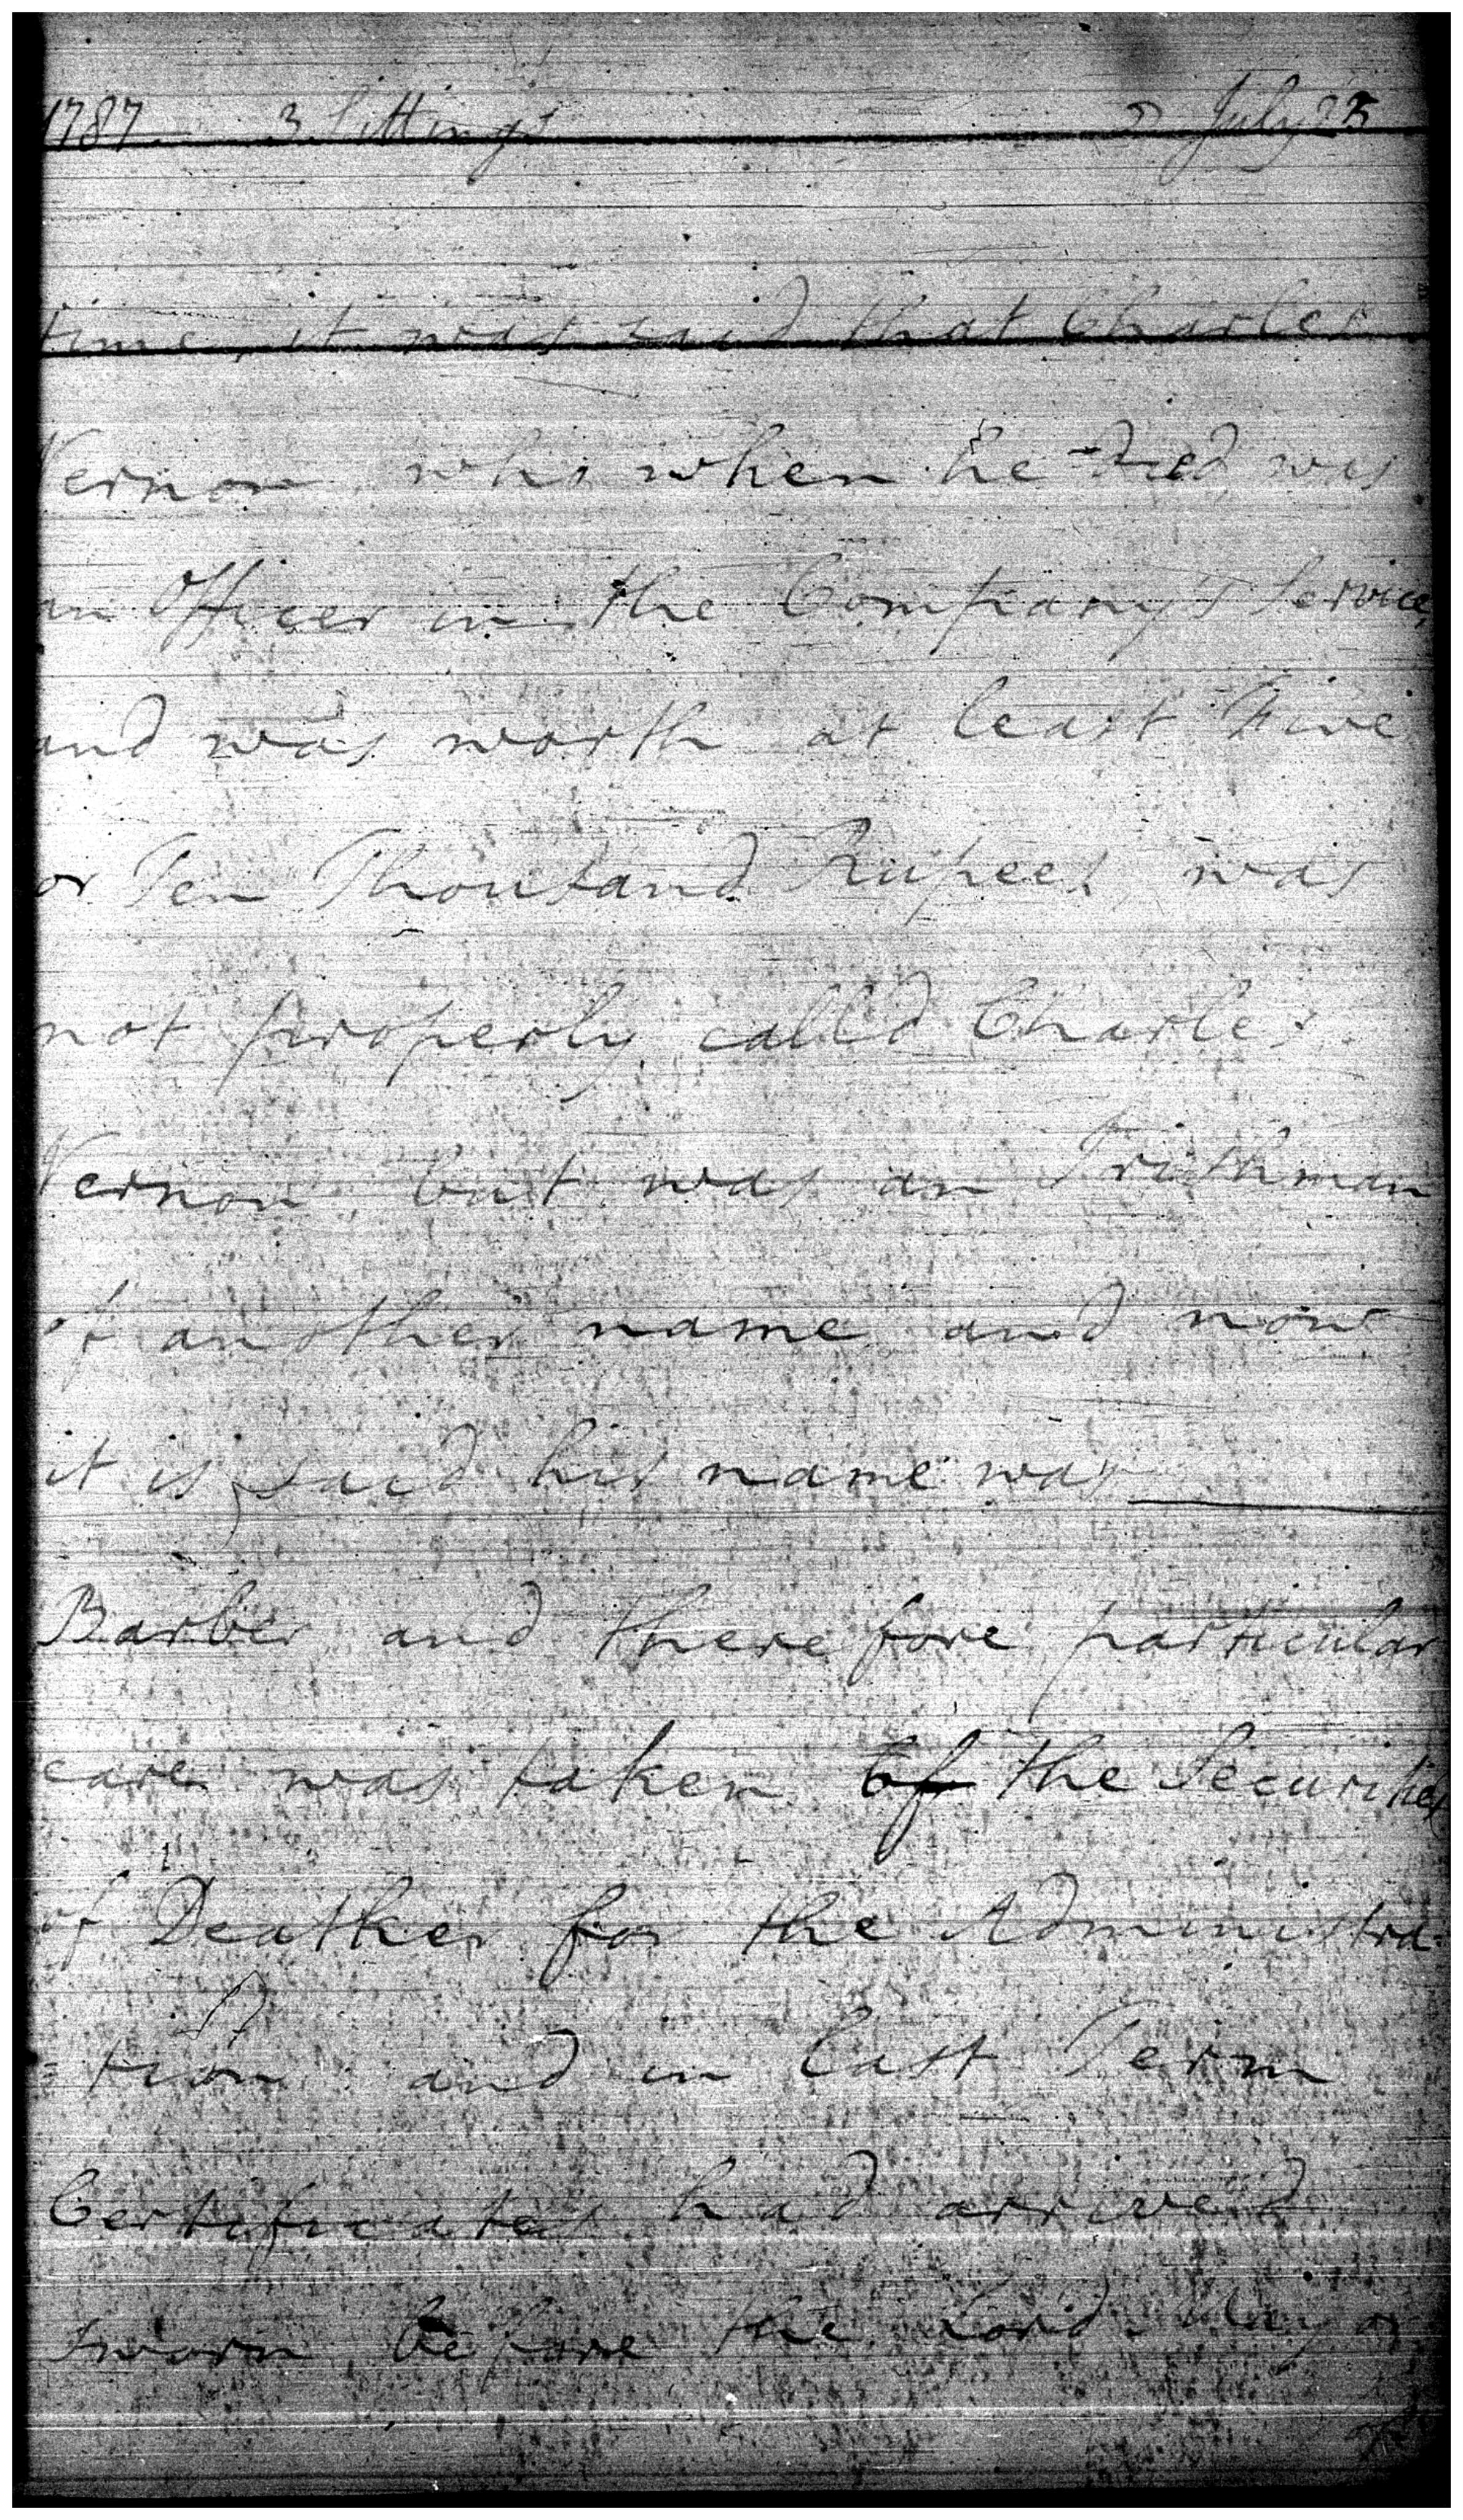 1787 3 Sittings July 23
time, it was said that Charles
Vernon who when he died was
an Officer in the Company's Service
and was worth at least Five
or Ten Thousand Rupees was
not properly called Charles
Vernon but was an Irishman
of another name and now
it is said his name was
Barber and therefore particular
care was taken of the Securities
of Deatker for the Administra-
=tion and in last Term
Certificates had arrived
sworn before the Lord Mayor